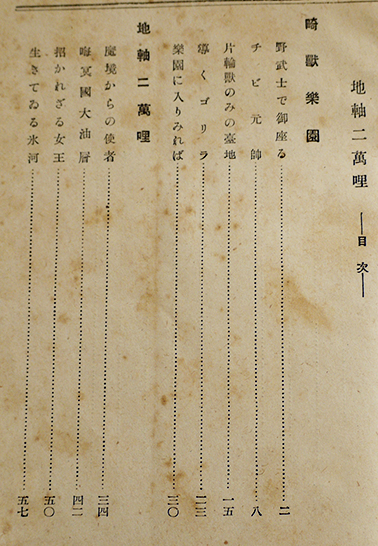 地軸二萬哩 ―目次―
畸獸樂園
野武士で御座る……二
チビ元帥……八
片輪獸のみの墓地……一五
導くゴリラ……二三
樂園に入りみれば……三〇
地軸二萬哩
魔境からの使者……三四
晦冥國大油層……四二
招かれざる女王……五〇
生きてゐる氷河……五七